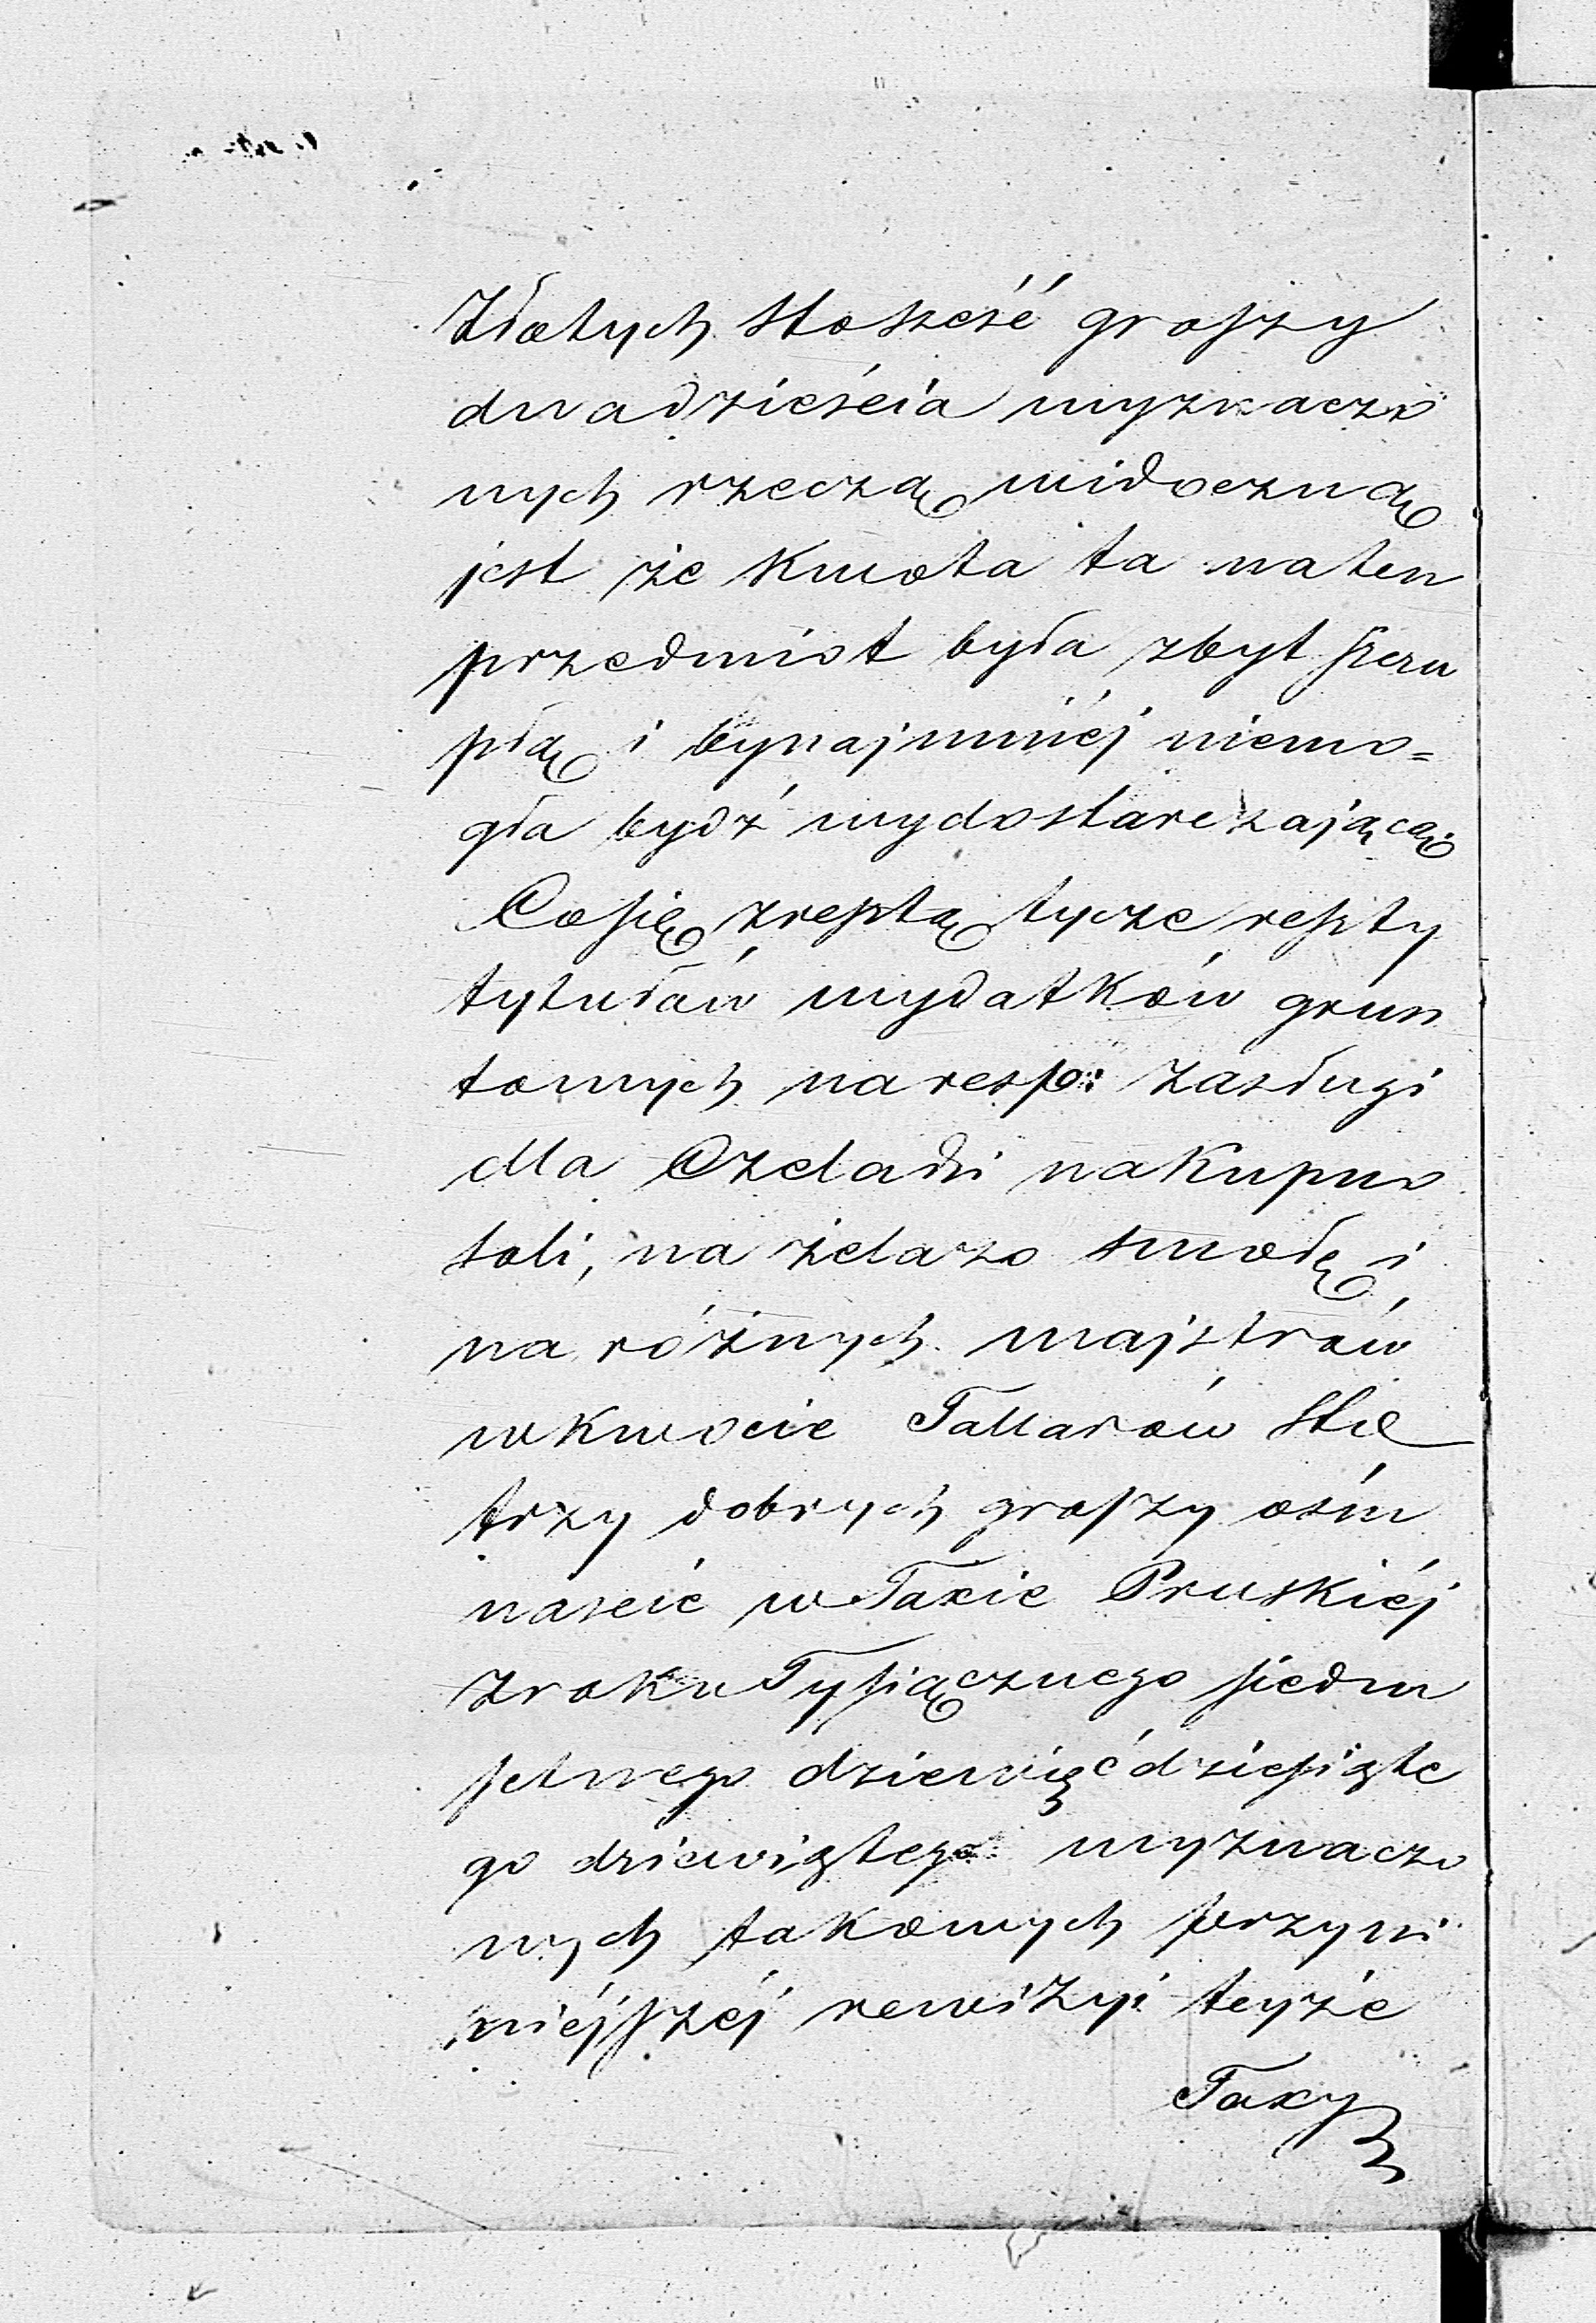 Złotych Stosześć groszy
dwadzieścia wyznaczo
nych rzeczą widoczną
jest że Kwota ta naten
przedmiot była zbyt szczu
płą i bynajmniéj niemo=
gła bydź wydostarczającą
Cosię zresztą tycze reszty
tytułów wydatków grun
towych na resp: zasługi
dla Czeladzi nakupno
soli, na żelazo smołę i
na różnych majstrów
w Kwocie Tallarów Sto
trzy dobrych groszy ośm
naście w Taxie Pruskiéj
zroku Tysiącznego siedm
setnego dziewięćdziesiąte
go dziewiątego wyznaczo
nych takowych przyni
niéjszéj rewizyi teyże
Taxy